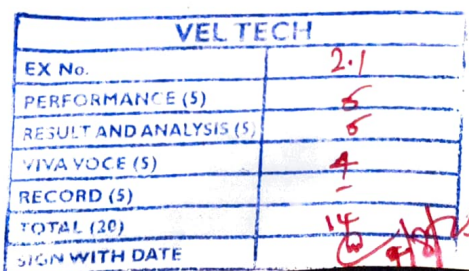 VEL TECH
EX No. 2.1
PERFORMANCE (5) 5
RESULT AND ANALYSIS (5) 5
VIVA VOCE (5) 4
RECORD (5) -
TOTAL (20) 14
SIGN WITH DATE